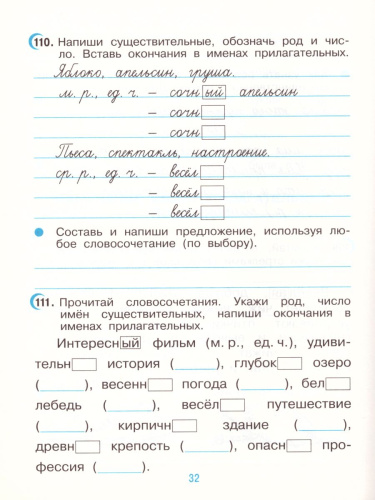 110. Напиши существительные, обозначь род и чис-
ло. Вставь окончания в именах прилагательных.
Яблоко, апельсин, груша.
м. р., ед. ч. – сочный апельсин
– сочн
– сочн
Пьеса, спектакль, настроение.
ср. р., ед. ч. – весёл
– весёл
– весёл
Составь и напиши предложение, используя лю-
бое словосочетание (по выбору).
111. Прочитай словосочетания. Укажи род, число
имён существительных, напиши окончания в
именах прилагательных.
Интересный фильм (м. р., ед. ч.), удиви-
тельн история (______), глубок озеро
(______), весенн погода (______), бел
лебедь (______), весёл путешествие
(______), кирпичн здание (______),
древн крепость (______), опасн про-
фессия (______).
32